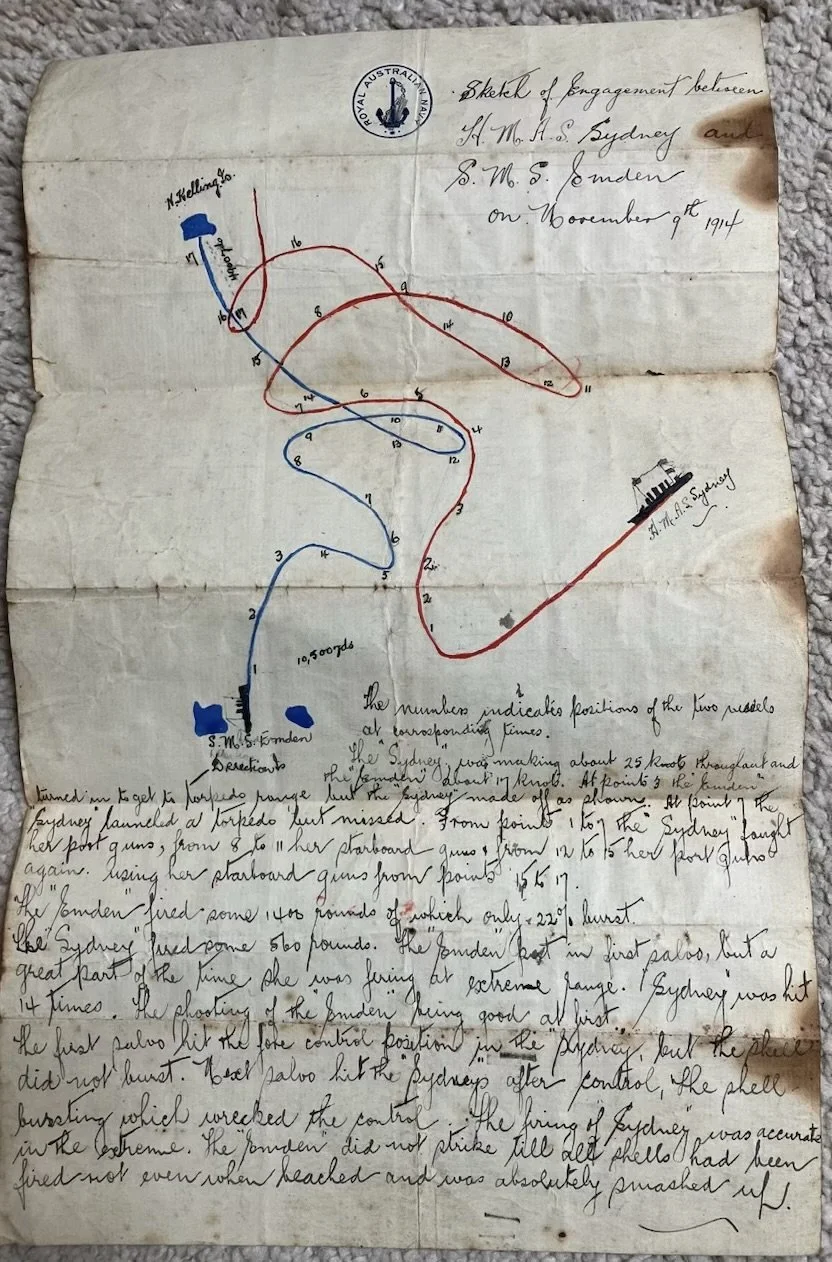 ROYAL AUSTRALIAN NAVY
Sketch of Engagement between
H. M. A. S. Sydney and
S. M. S. Emden
on November 9th 1914
N. Kelling Is.
4000yds
17
16
15
9
16
17
8
10
14
15
13
12
11
14
7
6
5
10
11
4
9
13
12
8
H.M.A.S Sydney
7
3
6
3
4
5
2
2
2
1
10,500yds
1
S.M.S. Emden
Directions
The numbers indicates positions of the two vessels
at corrosponding times.
The "Sydney" was making about 25 knots throughout and
the "Emden" about 17 knots. At point 5 the "Emden"
turned in to get to torpedo range but the "Sydney" made off as shown. At point 7 the
"Sydney" launched a torpedo but missed. From points 1 to 7 the "Sydney" fought
her port guns, from 8 to 11 her starboard guns, from 12 to 15 her port guns
again. using her starboard guns from points 15 to 17.
The "Emden" fired some 1400 rounds of which only 22% burst.
The "Sydney" fired some 560 rounds. The "Emden" got in first salvo, but a
great part of the time she was firing at extreme range. "Sydney" was hit
14 times. The shooting of the "Emden" being good at first.
The first salvo hit the fore control position in the "Sydney", but the shell
did not burst. Next salvo hit the "Sydney's after control, the shell
bursting which wrecked the control. The firing of "Sydney" was accurate
in the extreme. The "Emden" did not strike till all shells had been
fired not even when beached and was absolutely smashed up.